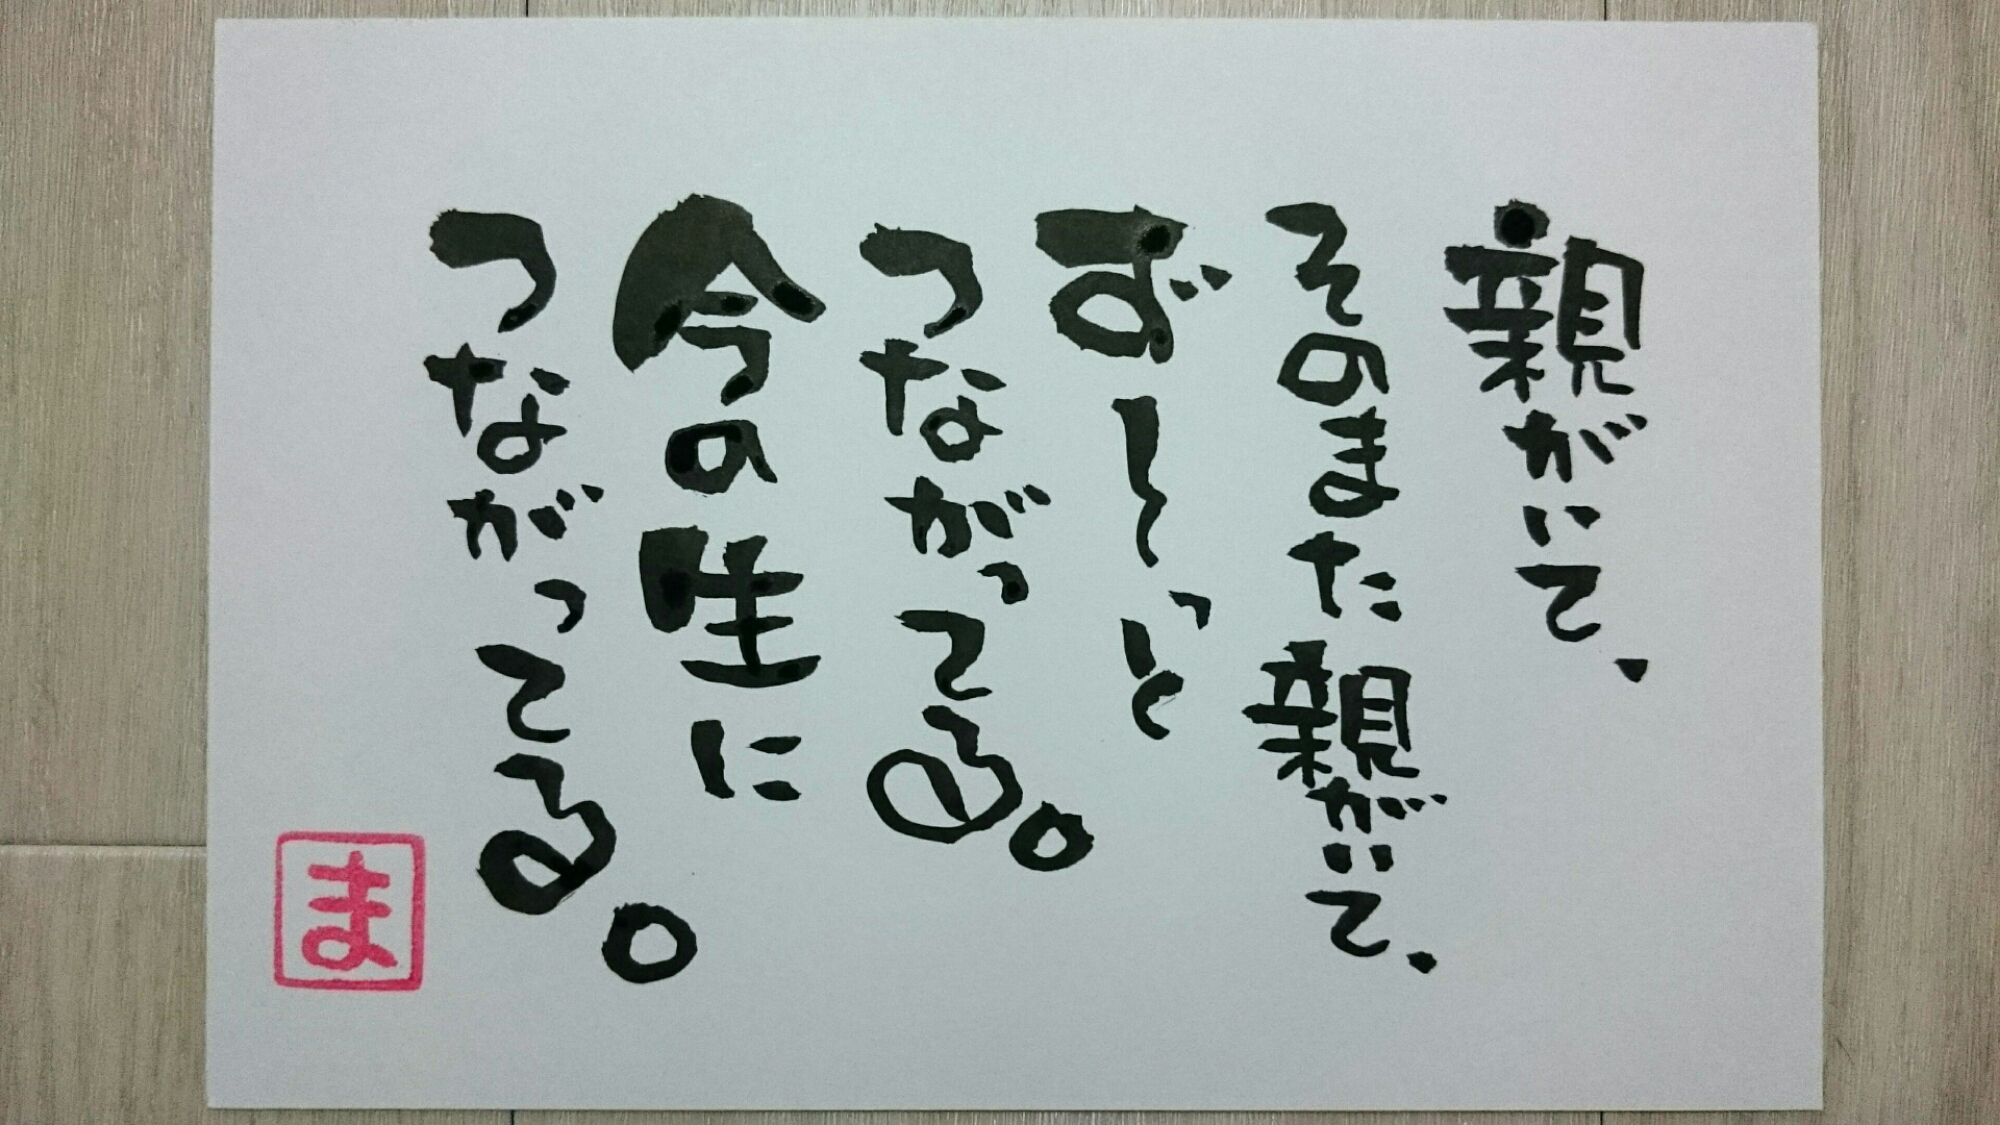 親がいて、
そのまた親がいて、
ず〜っと
つながってる。
今の生に
つながってる。
ま